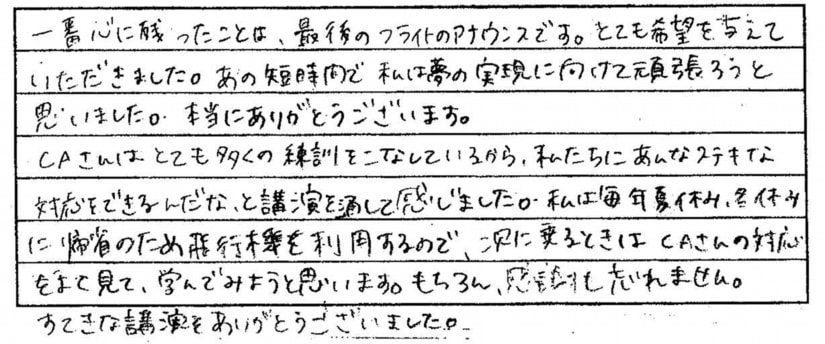 一番心に残ったことは、最後のフライトのアナウンスです。とても希望を与えて
いただきました。あの短時間で私は夢の実現に向けて頑張ろうと
思いました。本当にありがとうございます。
CAさんはとても多くの練訓をこなしているから、私たちにあんなステキな
対応をできるんだな、と講演を通して感じました。私は毎年夏休み、冬休み
に帰省のため飛行機を利用するので、次に乗るときはCAさんの対応
をまた見て、学んでみようと思います。もちろん、感謝も忘れません。
すてきな講演をありがとうございました。